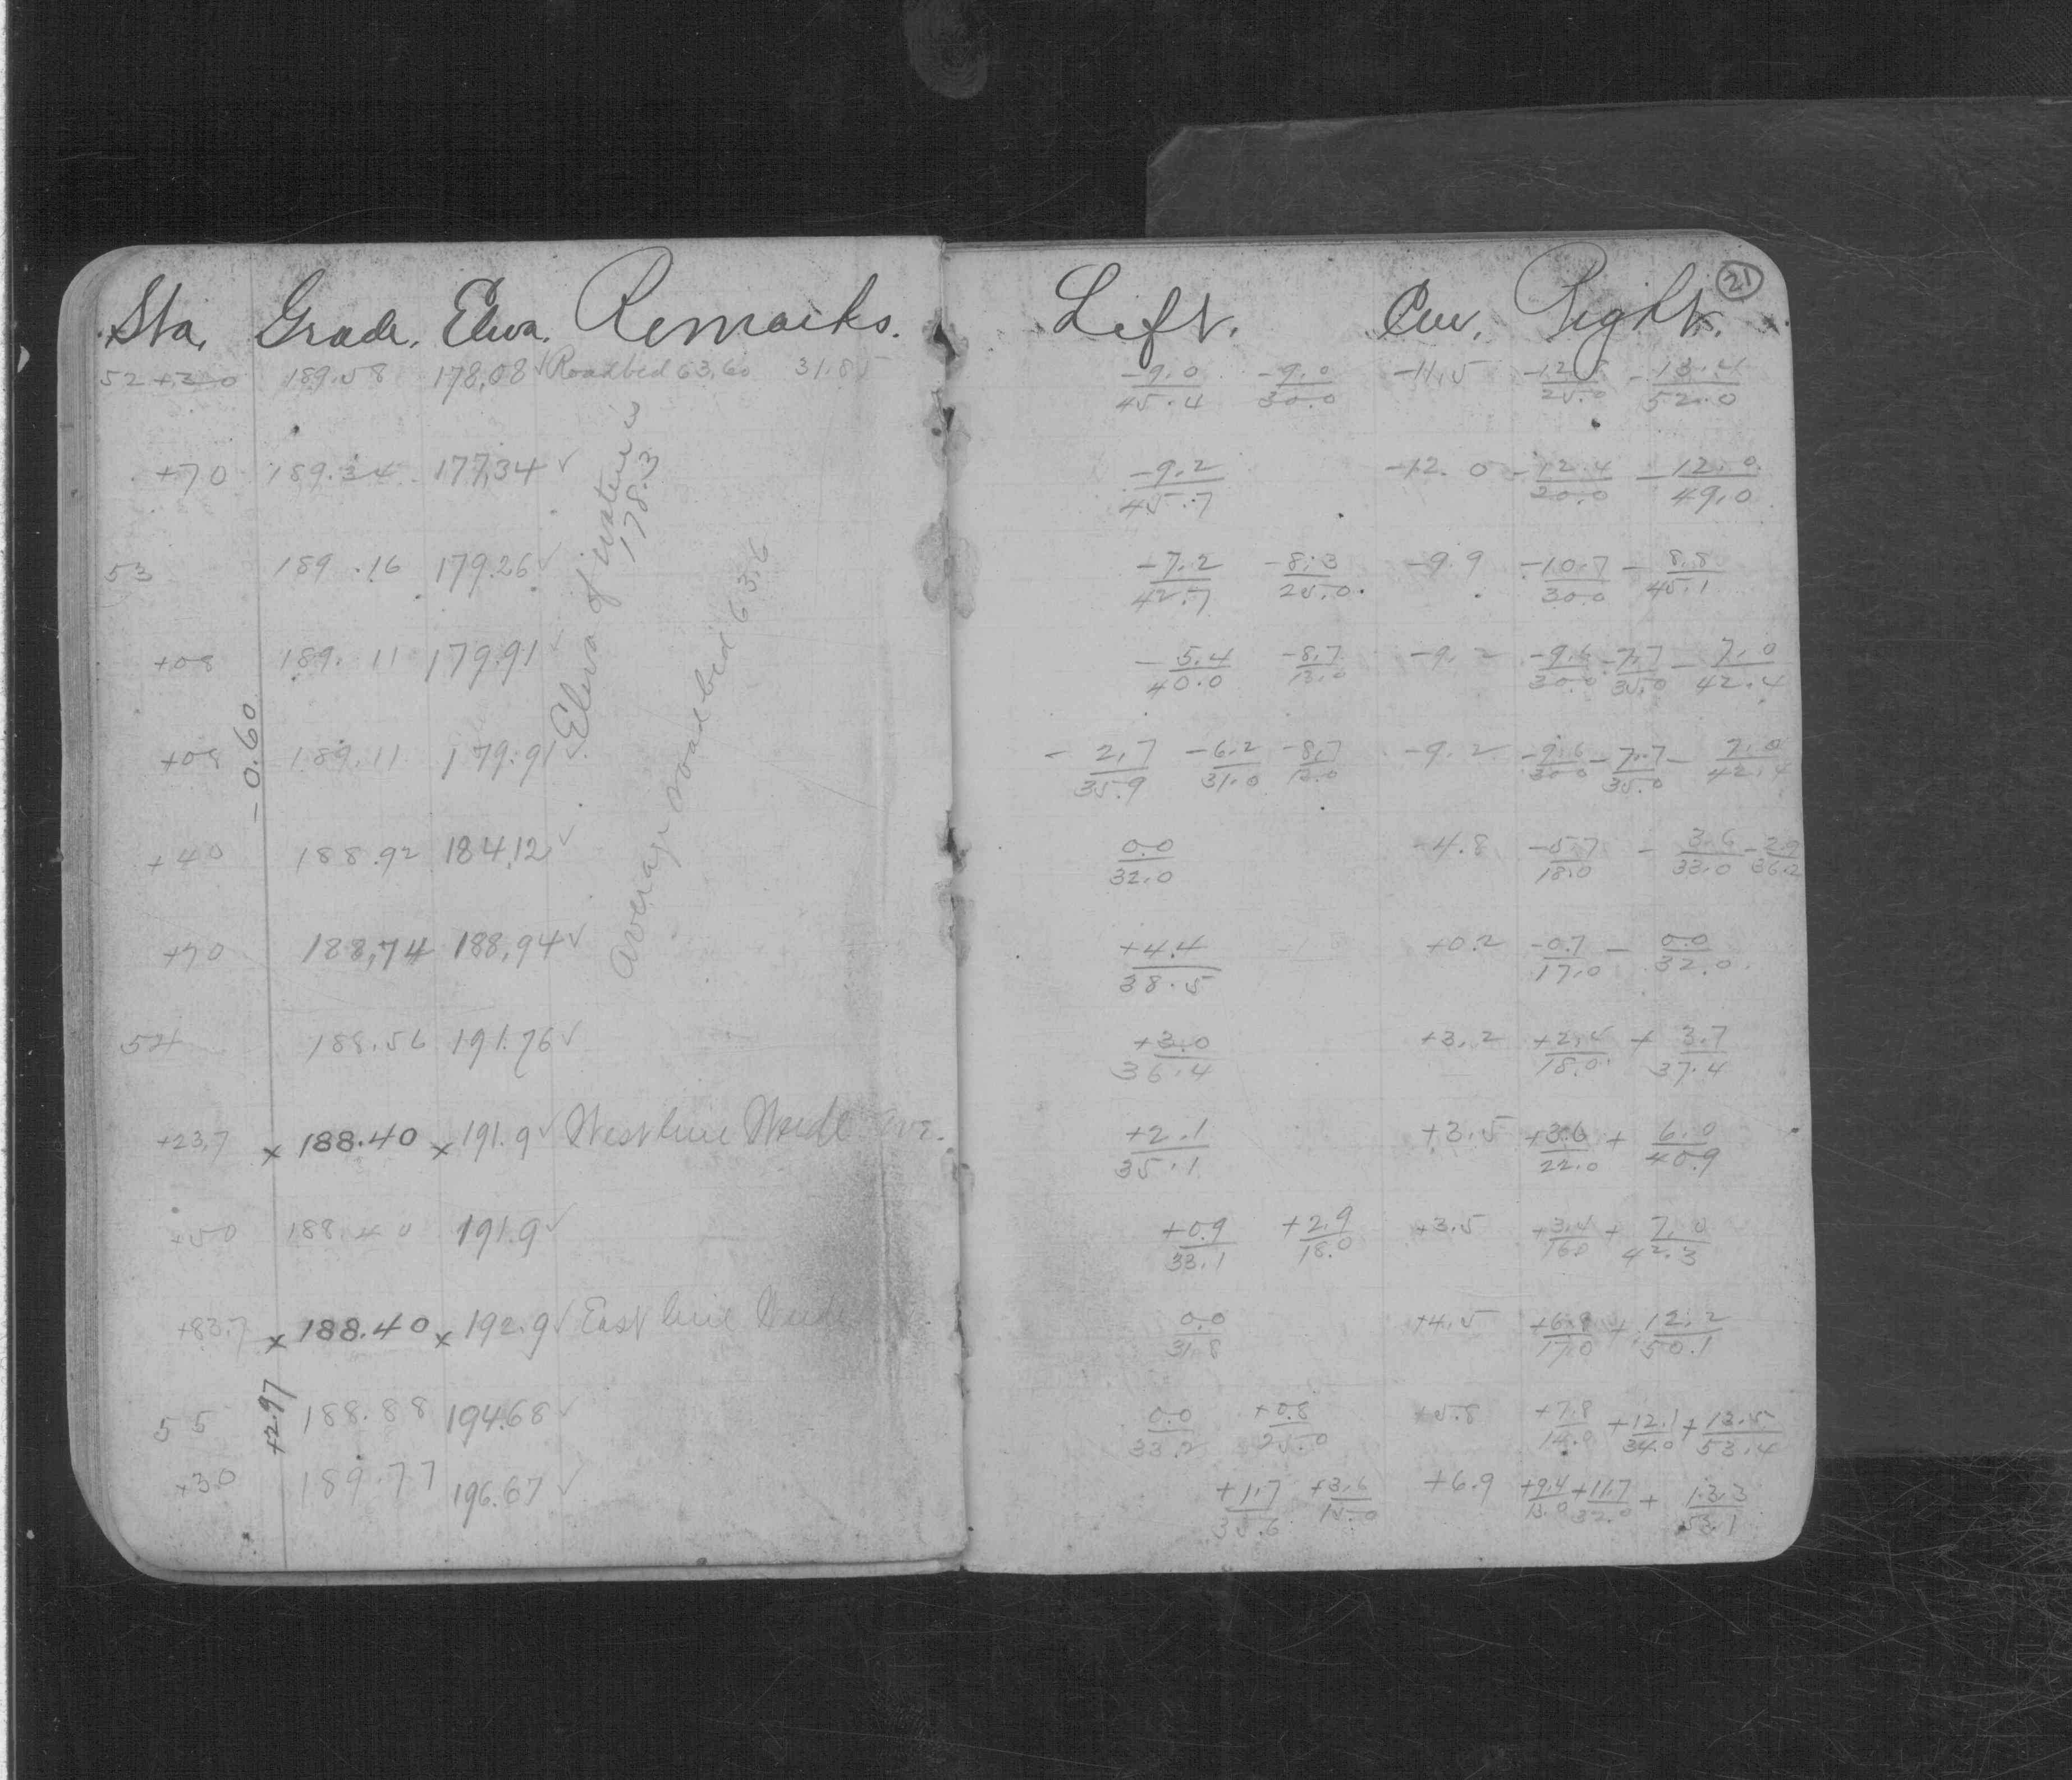 Sta. Grade. Eleva. Remarks. Left. Cen. Right. 21
52+30 189.58 178.08 ✓ Roadbed 63.60 31.85 -9.0/45.4 -9.0/30.0 -11.5 -13.4/52.0
+70 189.34 177.34 ✓ -9.2/45.7 -12.0 -12.4/20.0 -12.0/49.0
Eleva of water is 178.3
53 189.16 179.26 ✓ -7.2/42.7 -8.3/25.0 -9.9 -10.7/30.0 -8.8/45.1
Average roadbed 63.6
+08 189.11 179.91 ✓ -5.4/40.0 -8.7/13.0 -9.2 -9.6/30.0 -7.7/35.0 -7.0/42.4
-0.60
+08 189.11 179.91 ✓ -2.7/35.9 -6.2/31.0 -8.7/13.0 -9.2 -9.6/30.0 -7.7/35.0 -7.0/42.4
+40 188.92 184.12 ✓ 0.0/32.0 -4.8 -5.7/18.0 -3.6/33.0 -2.9/36.2
+70 188.74 188.94 ✓ +4.4/38.5 +0.2 -0.7/17.0 - 0.0/32.0
54 188.56 191.76 ✓ +3.0/36.4 +3.2 +2.4/18.0 +3.7/37.4
+23.7 x 188.40 x 191.9 ✓ West line Ave. +2.1/35.1 +3.5 +3.6/22.0 +6.0/40.9
+50 188.40 191.9 ✓ +0.9/33.1 +2.9/18.0 +3.5 +3.4/16.0 +7.0/42.3
+83.7 x 188.40 x 192.9 ✓ East line 0.0/31.8 +4.5 +6.8/17.0 +12.2/50.1
+2.97
55 188.88 194.68 ✓ 0.0/33.2 +0.8/25.0 +5.8 +7.8/14.0 +12.1/34.0 +13.5/53.4
+30 189.77 196.67 ✓ +1.7/35.6 +3.6/15.0 +6.9 +9.4/13.0 +11.7/32.0 +13.3/53.1